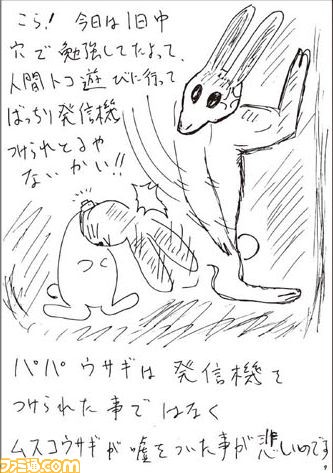 こら！今日は1日中
穴で勉強してたよって、
人間トコ遊びに行って
ばっちり発信機
つけられとるや
ないかい!!
つく
パパウサギは発信機を
つけられた事ではなく
ムスコウサギが嘘をついた事が悲しいのです。
ファミ通.com